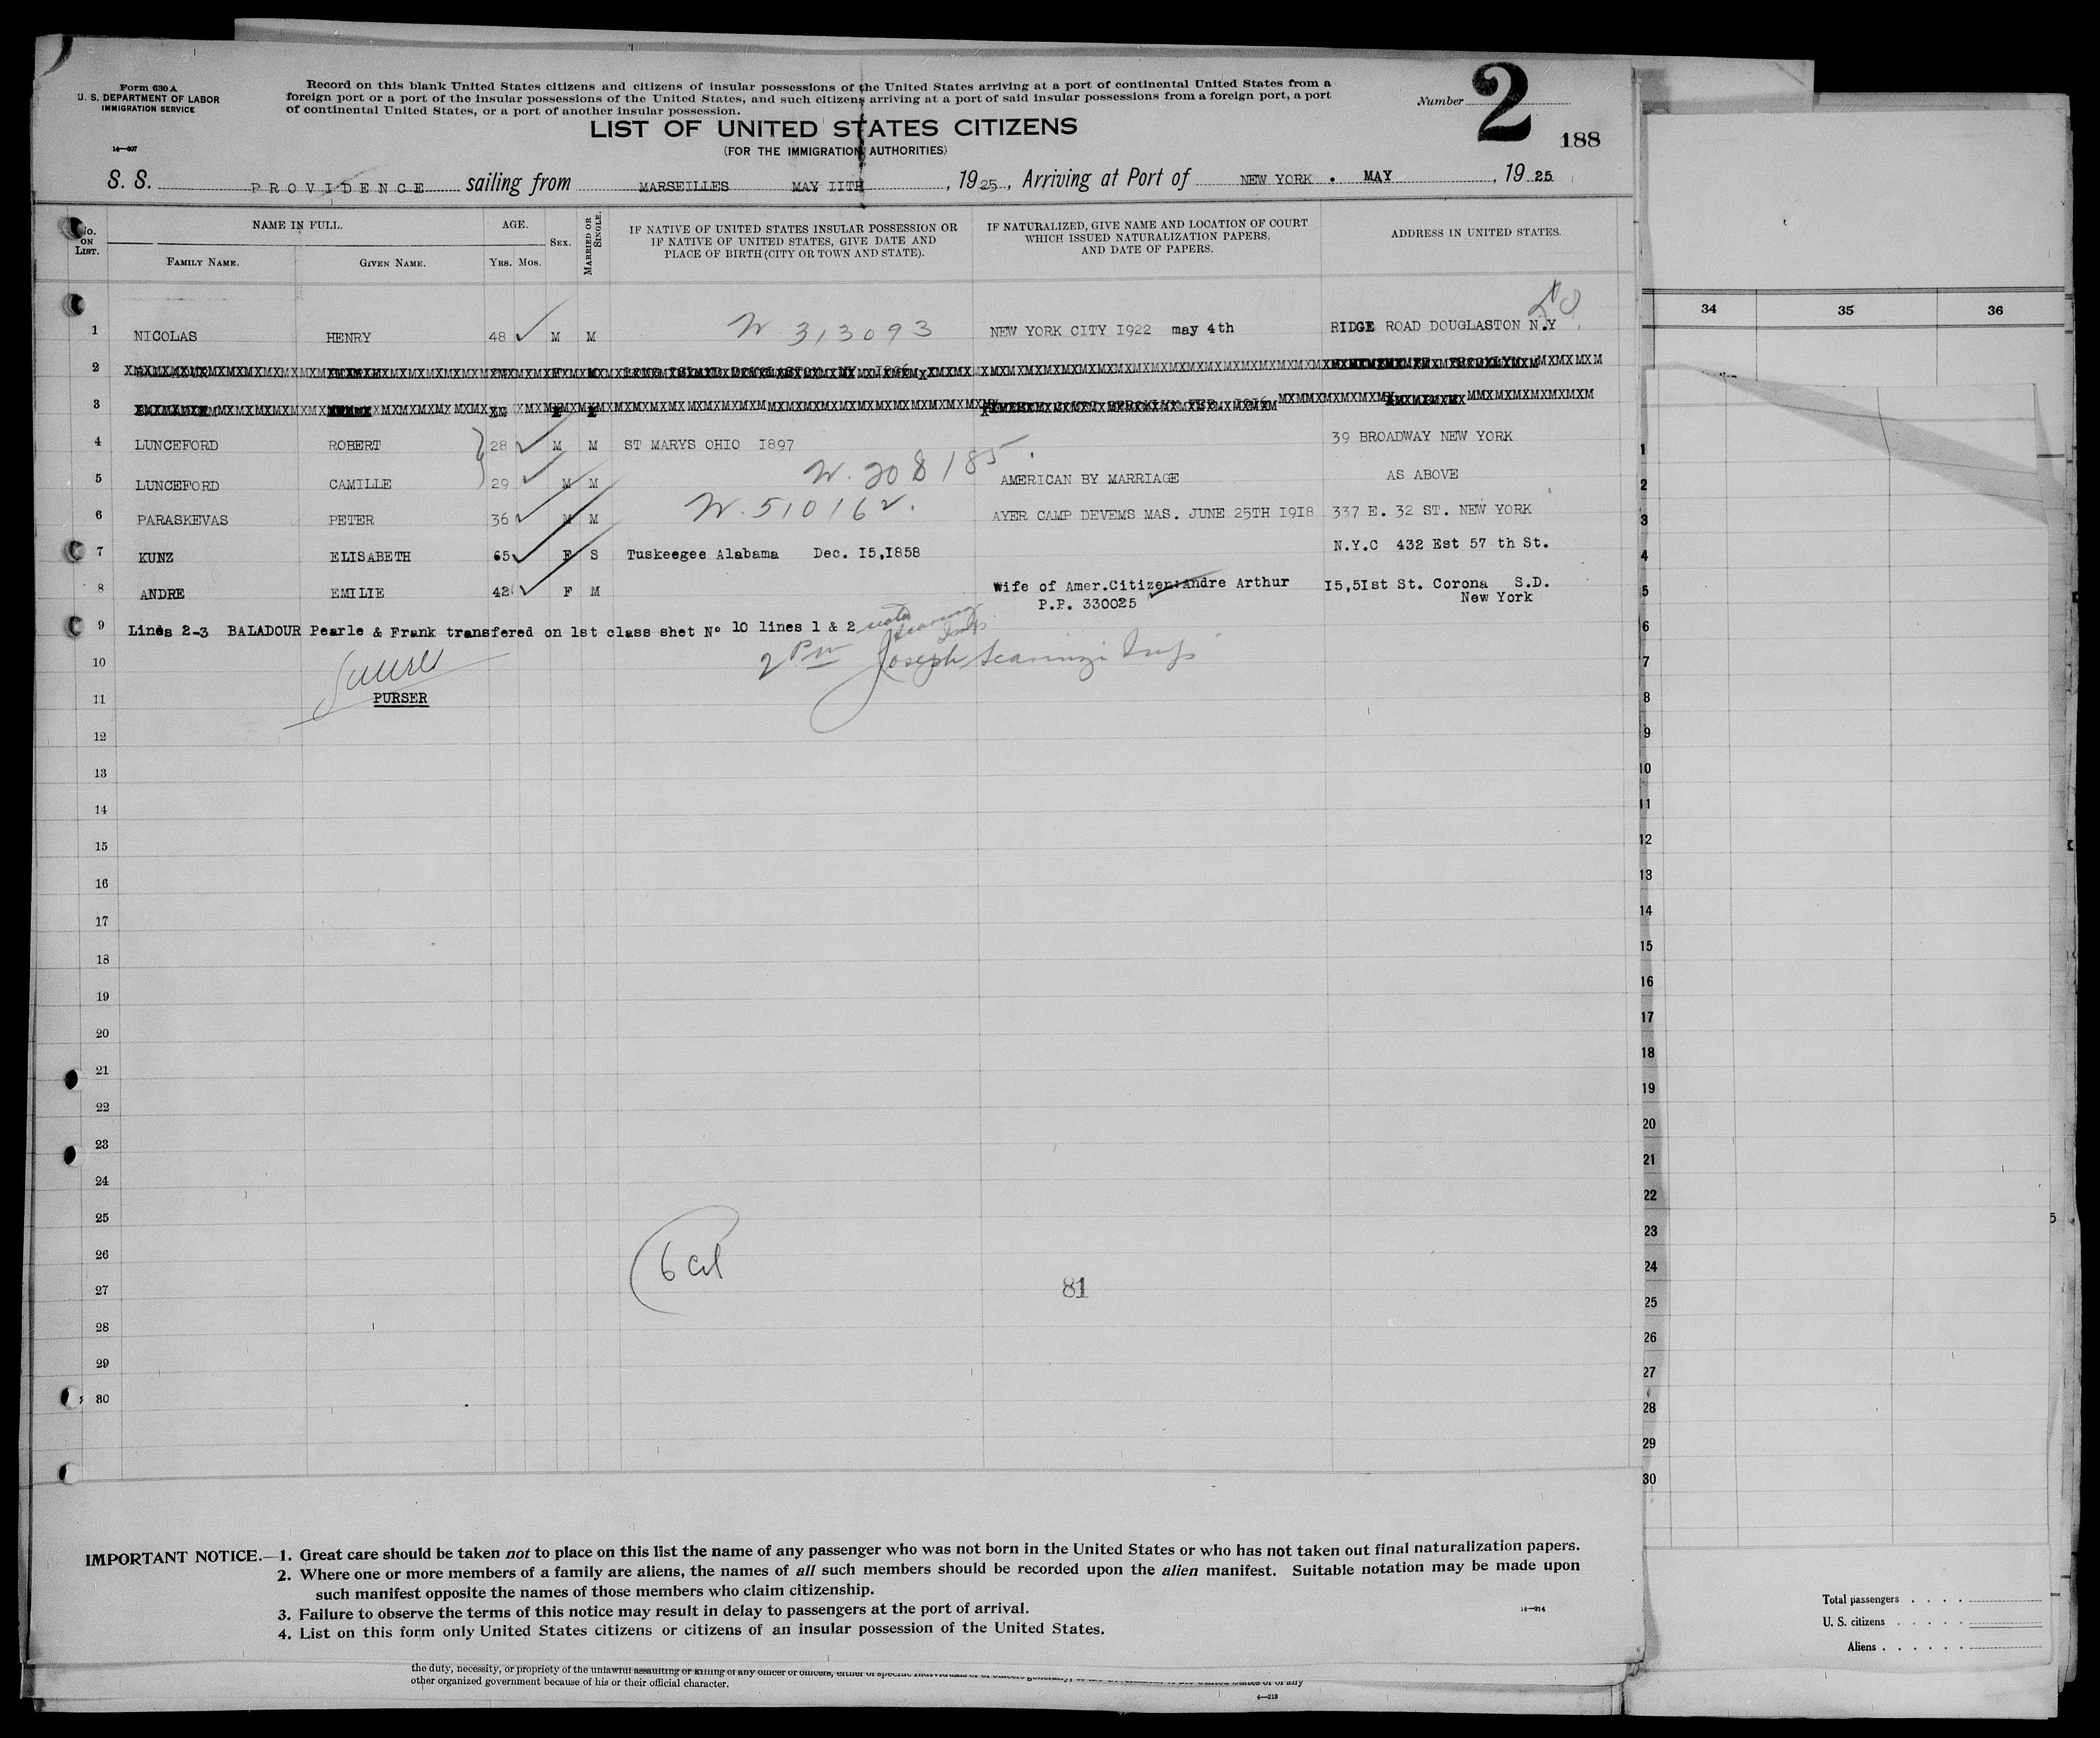 Form 630 A
U. S. DEPARTMENT OF LABOR
IMMIGRATION SERVICE
14—607
Record on this blank United States citizens and citizens of insular possessions of the United States arriving at a port of continental United States from a
foreign port or a port of the insular possessions of the United States, and such citizens arriving at a port of said insular possessions from a foreign port, a port
of continental United States, or a port of another insular possession.
Number 2
188
LIST OF UNITED STATES CITIZENS
(FOR THE IMMIGRATION AUTHORITIES)
S. S. PROVIDENCE sailing from MARSEILLES MAY IITH, 1925, Arriving at Port of NEW YORK . MAY, 1925
No. ON LIST. NAME IN FULL. FAMILY NAME. GIVEN NAME. AGE. YRS. MOS. SEX. MARRIED OR SINGLE. IF NATIVE OF UNITED STATES INSULAR POSSESSION OR IF NATIVE OF UNITED STATES, GIVE DATE AND PLACE OF BIRTH (CITY OR TOWN AND STATE). IF NATURALIZED, GIVE NAME AND LOCATION OF COURT WHICH ISSUED NATURALIZATION PAPERS, AND DATE OF PAPERS. ADDRESS IN UNITED STATES.
1 NICOLAS HENRY 48 M M N. 313093 NEW YORK CITY I922 may 4th RIDGE ROAD DOUGLASTON N.Y
2
3
4 LUNCEFORD ROBERT 28 M M ST MARYS OHIO I897 39 BROADWAY NEW YORK
5 LUNCEFORD CAMILLE 29 M M N. 208185. AMERICAN BY MARRIAGE AS ABOVE
6 PARASKEVAS PETER 36 M M N. 510162. AYER CAMP DEVEMS MAS. JUNE 25TH I9I8 337 E. 32 ST. NEW YORK
7 KUNZ ELISABETH 65 F S Tuskeegee Alabama Dec. I5,I858 N.Y.C 432 Est 57 th St.
8 ANDRE EMILIE 42 F M Wife of Amer.Citizen:Andre Arthur I5,5Ist St. Corona S.D.
P.P. 330025 New York
9 Lines 2-3 BALADOUR Pearle & Frank transfered on 1st class shet No 10 lines 1 & 2
10 2 PM Joseph Scarinzi Insp
11 PURSER
12
13
14
15
16
17
18
19
20
21
22
23
24
25
26 6 Cit
27 81
28
29
30
IMPORTANT NOTICE.—1. Great care should be taken not to place on this list the name of any passenger who was not born in the United States or who has not taken out final naturalization papers.
2. Where one or more members of a family are aliens, the names of all such members should be recorded upon the alien manifest. Suitable notation may be made upon
such manifest opposite the names of those members who claim citizenship.
3. Failure to observe the terms of this notice may result in delay to passengers at the port of arrival.
4. List on this form only United States citizens or citizens of an insular possession of the United States.
14—914
the duty, necessity, or propriety of the unlawful assaulting or killing of any officer or officers, either of specific individuals or of officers generally,
other organized government because of his or their official character.
4—213
34 35 36
1
2
3
4
5
6
7
8
9
10
11
12
13
14
15
16
17
18
19
20
21
22
23
24
25
26
27
28
29
30
Total passengers
U. S. citizens
Aliens